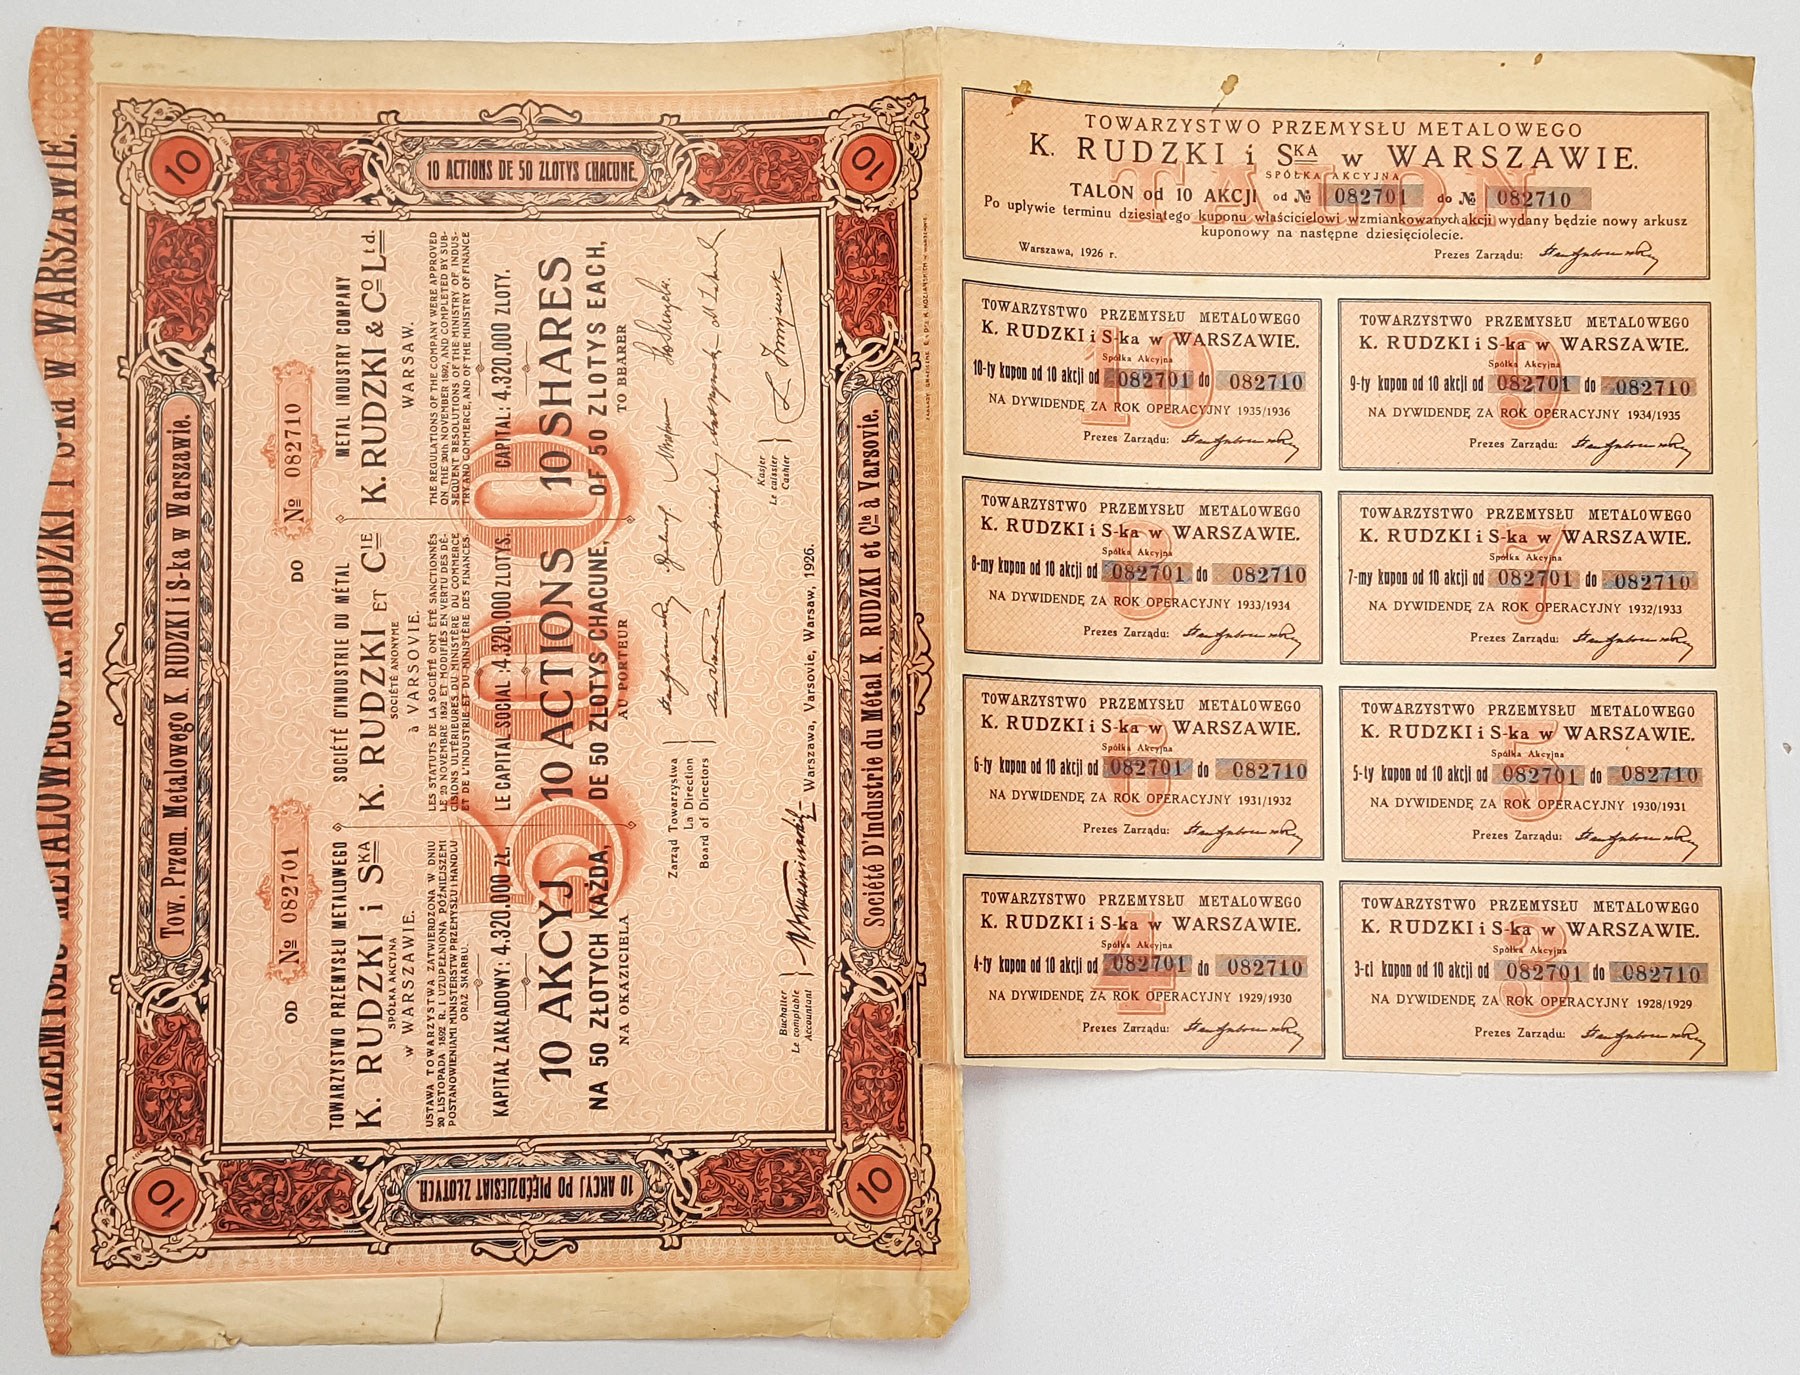 PRZEMYSŁU METALOWEGO K. RUDZKI i S-ka w WARSZAWIE.
10
10 ACTIONS DE 50 ZLOTYS CHACUNE.
10
Tow. Przem. Metalowego K. RUDZKI i S-ka w Warszawie.
OD № 082701 DO № 082710
TOWARZYSTWO PRZEMYSŁU METALOWEGO
K. RUDZKI i SKA
SPÓŁKA AKCYJNA
w WARSZAWIE.
USTAWA TOWARZYSTWA ZATWIERDZONA W DNIU
20 LISTOPADA 1892 R. I UZUPEŁNIONA PÓŹNIEJSZEMI
POSTANOWIENIAMI MINISTERSTW PRZEMYSŁU I HANDLU
ORAZ SKARBU.
KAPITAŁ ZAKŁADOWY: 4.320.000 ZŁ.
SOCIÉTÉ D'INDUSTRIE DU MÉTAL
K. RUDZKI ET CIE
SOCIÉTÉ ANONYME
à VARSOVIE.
LES STATUTS DE LA SOCIÉTÉ ONT ÉTÉ SANCTIONNÉS
LE 20 NOVEMBRE 1892 ET MODIFIÉS EN VERTU DES DÉ-
CISIONS ULTÉRIEURES DU MINISTÈRE DU COMMERCE
ET DE L'INDUSTRIE ET DU MINISTÈRE DES FINANCES.
LE CAPITAL SOCIAL: 4.320.000 ZLOTYS.
METAL INDUSTRY COMPANY
K. RUDZKI & CO LTD.
WARSAW.
THE REGULATIONS OF THE COMPANY WERE APPROVED
ON THE 20th NOVEMBER 1892, AND COMPLETED BY SUB-
SEQUENT RESOLUTIONS OF THE MINISTRY OF INDUS-
TRY AND COMMERCE, AND OF THE MINISTRY OF FINANCE
CAPITAL: 4.320.000 ZLOTY.
500
10 AKCYJ 10 ACTIONS 10 SHARES
NA 50 ZŁOTYCH KAŻDA, DE 50 ZLOTYS CHACUNE, OF 50 ZLOTYS EACH,
NA OKAZICIELA AU PORTEUR TO BEARER
Zarząd Towarzystwa
La Direction
Board of Directors
Buchalter
Le comptable
Accountant
Kasjer
Le caissier
Cashier
Warszawa, Varsovie, Warsaw, 1926.
Société D'Industrie du Métal K. RUDZKI et Cie à Varsovie.
10
10 AKCYJ PO PIĘĆDZIESIĄT ZŁOTYCH.
10
TALON
TOWARZYSTWO PRZEMYSŁU METALOWEGO
K. RUDZKI i SKA w WARSZAWIE.
SPÓŁKA AKCYJNA
TALON od 10 AKCJI od № 082701 do № 082710
Po upływie terminu dziesiątego kuponu właścicielowi wzmiankowanych akcji wydany będzie nowy arkusz
kuponowy na następne dziesięciolecie.
Warszawa, 1926 r. Prezes Zarządu:
10
TOWARZYSTWO PRZEMYSŁU METALOWEGO
K. RUDZKI i S-ka w WARSZAWIE.
Spółka Akcyjna
10-ty kupon od 10 akcji od 082701 do 082710
NA DYWIDENDĘ ZA ROK OPERACYJNY 1935/1936
Prezes Zarządu:
9
TOWARZYSTWO PRZEMYSŁU METALOWEGO
K. RUDZKI i S-ka w WARSZAWIE.
Spółka Akcyjna
9-ty kupon od 10 akcji od 082701 do 082710
NA DYWIDENDĘ ZA ROK OPERACYJNY 1934/1935
Prezes Zarządu:
8
TOWARZYSTWO PRZEMYSŁU METALOWEGO
K. RUDZKI i S-ka w WARSZAWIE.
Spółka Akcyjna
8-my kupon od 10 akcji od 082701 do 082710
NA DYWIDENDĘ ZA ROK OPERACYJNY 1933/1934
Prezes Zarządu:
7
TOWARZYSTWO PRZEMYSŁU METALOWEGO
K. RUDZKI i S-ka w WARSZAWIE.
Spółka Akcyjna
7-my kupon od 10 akcji od 082701 do 082710
NA DYWIDENDĘ ZA ROK OPERACYJNY 1932/1933
Prezes Zarządu:
6
TOWARZYSTWO PRZEMYSŁU METALOWEGO
K. RUDZKI i S-ka w WARSZAWIE.
Spółka Akcyjna
6-ty kupon od 10 akcji od 082701 do 082710
NA DYWIDENDĘ ZA ROK OPERACYJNY 1931/1932
Prezes Zarządu:
5
TOWARZYSTWO PRZEMYSŁU METALOWEGO
K. RUDZKI i S-ka w WARSZAWIE.
Spółka Akcyjna
5-ty kupon od 10 akcji od 082701 do 082710
NA DYWIDENDĘ ZA ROK OPERACYJNY 1930/1931
Prezes Zarządu:
4
TOWARZYSTWO PRZEMYSŁU METALOWEGO
K. RUDZKI i S-ka w WARSZAWIE.
Spółka Akcyjna
4-ty kupon od 10 akcji od 082701 do 082710
NA DYWIDENDĘ ZA ROK OPERACYJNY 1929/1930
Prezes Zarządu:
3
TOWARZYSTWO PRZEMYSŁU METALOWEGO
K. RUDZKI i S-ka w WARSZAWIE.
Spółka Akcyjna
3-ci kupon od 10 akcji od 082701 do 082710
NA DYWIDENDĘ ZA ROK OPERACYJNY 1928/1929
Prezes Zarządu: